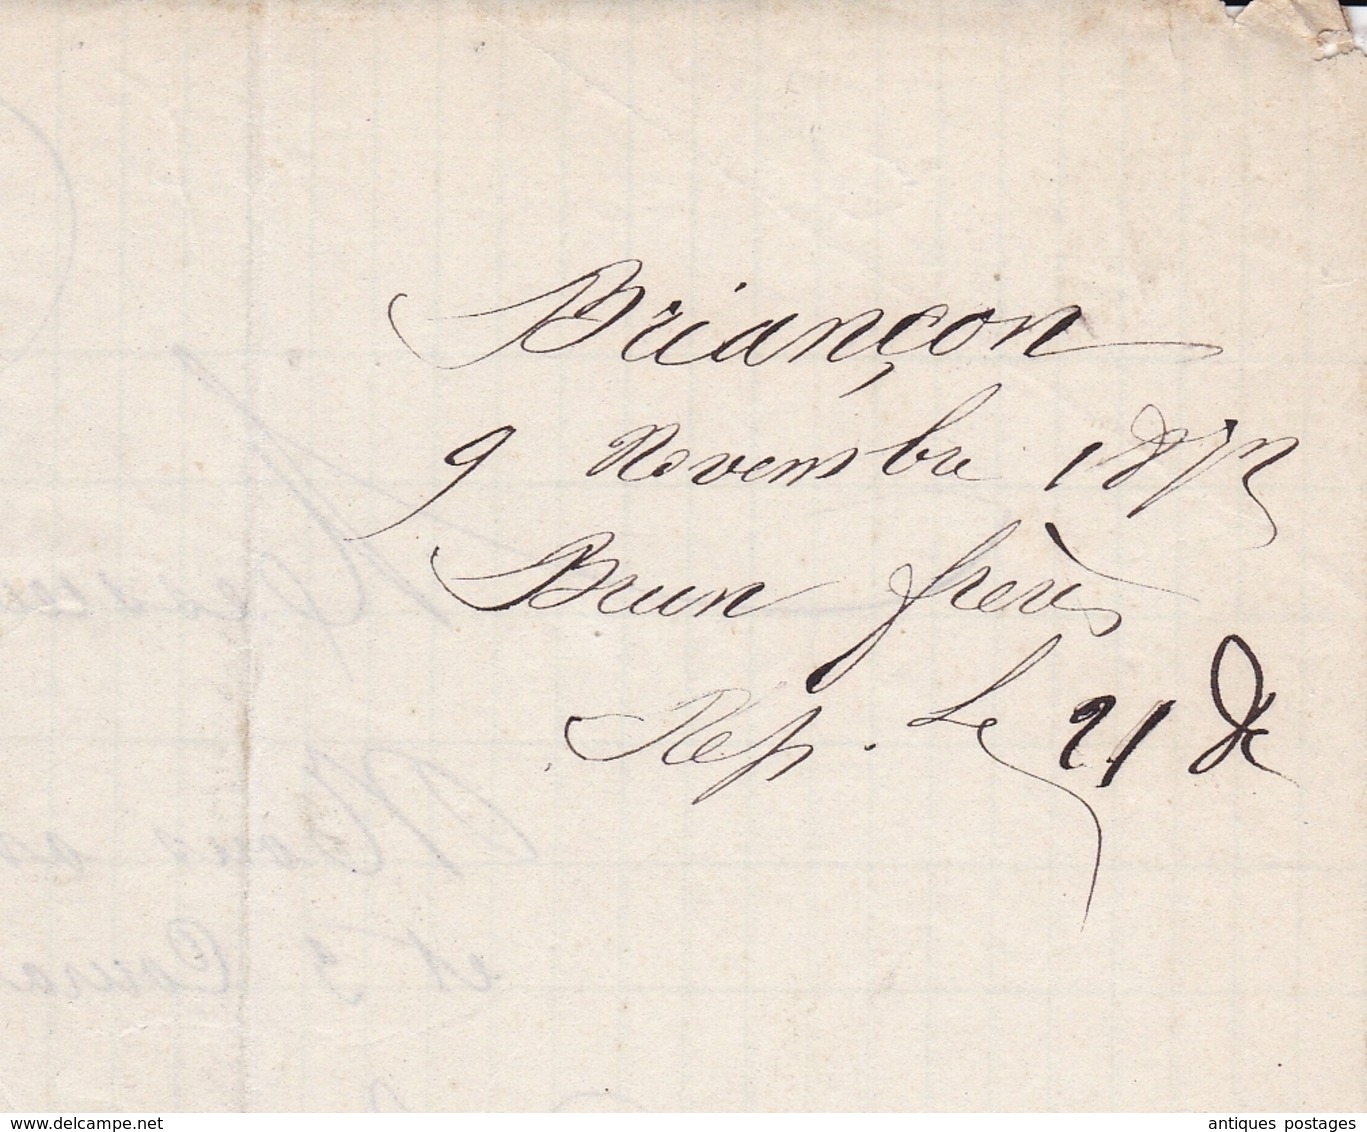 Briançon
9 Novembre 1872
Brun frères
Rép. Le 21 dc
www.delcampe.net
antiques postages